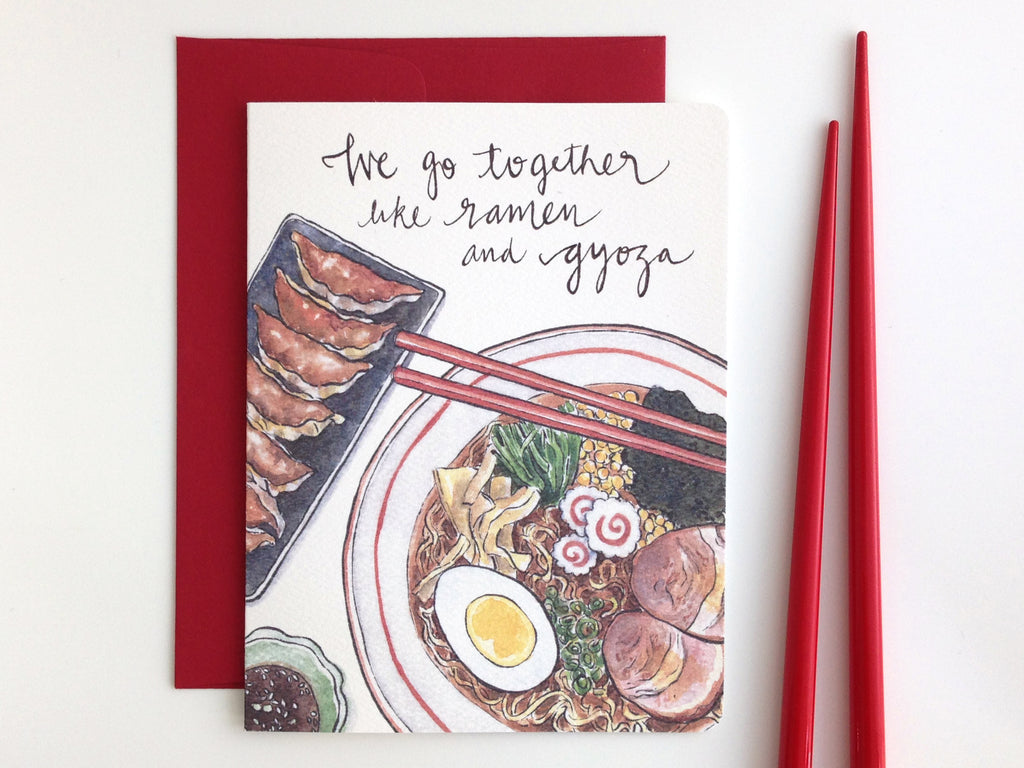 We go together
like ramen
and gyoza